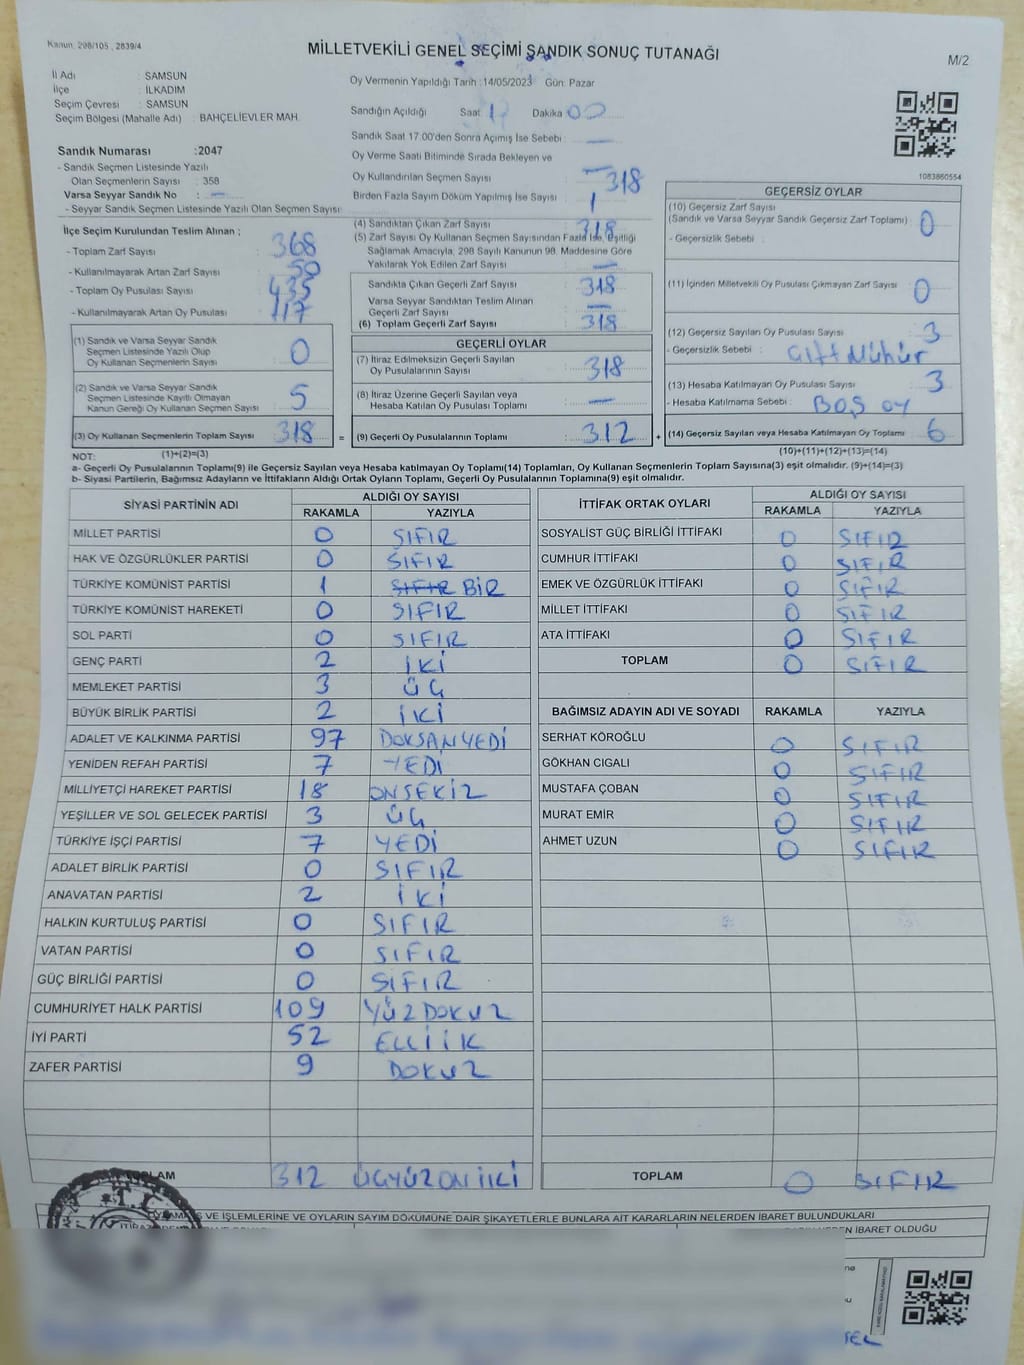 Kanun. 298/105 , 2839/4
MİLLETVEKİLİ GENEL SEÇİMİ SANDIK SONUÇ TUTANAĞI
M/2
İl Adı : SAMSUN
İlçe : İLKADIM
Seçim Çevresi : SAMSUN
Seçim Bölgesi (Mahalle Adı) : BAHÇELİEVLER MAH.
Oy Vermenin Yapıldığı Tarih :14/05/2023 Gün: Pazar
Sandığın Açıldığı Saat 17 Dakika 00
Sandık Saat 17.00'den Sonra Açımış İse Sebebi : —
Oy Verme Saati Bitiminde Sırada Bekleyen ve
Oy Kullandırılan Seçmen Sayısı : — 318
Birden Fazla Sayım Döküm Yapılmış İse Sayısı : 1
Sandık Numarası :2047
- Sandık Seçmen Listesinde Yazılı
Olan Seçmenlerin Sayısı : 358
Varsa Seyyar Sandık No : —
- Seyyar Sandık Seçmen Listesinde Yazılı Olan Seçmen Sayısı:
1083860554
İlçe Seçim Kurulundan Teslim Alınan ;
- Toplam Zarf Sayısı : 368
- Kullanılmayarak Artan Zarf Sayısı : 50
- Toplam Oy Pusulası Sayısı : 435
- Kullanılmayarak Artan Oy Pusulası : 117
(1) Sandık ve Varsa Seyyar Sandık
Seçmen Listesinde Yazılı Olup
Oy Kullanan Seçmenlerin Sayısı : 0
(2) Sandık ve Varsa Seyyar Sandık
Seçmen Listesinde Kayıtlı Olmayan
Kanun Gereği Oy Kullanan Seçmen Sayısı : 5
(3) Oy Kullanan Seçmenlerin Toplam Sayısı : 318
(1)+(2)=(3)
(4) Sandıktan Çıkan Zarf Sayısı : 318
(5) Zarf Sayısı Oy Kullanan Seçmen Sayısından Fazla İse, Eşitliği
Sağlamak Amacıyla, 298 Sayılı Kanunun 98. Maddesine Göre
Yakılarak Yok Edilen Zarf Sayısı : —
Sandıkta Çıkan Geçerli Zarf Sayısı : 318
Varsa Seyyar Sandıktan Teslim Alınan
Geçerli Zarf Sayısı : —
(6) Toplam Geçerli Zarf Sayısı : 318
GEÇERLİ OYLAR
(7) İtiraz Edilmeksizin Geçerli Sayılan
Oy Pusulalarının Sayısı : 318
(8) İtiraz Üzerine Geçerli Sayılan veya
Hesaba Katılan Oy Pusulası Toplamı : —
= (9) Geçerli Oy Pusulalarının Toplamı : 312 +
GEÇERSİZ OYLAR
(10) Geçersiz Zarf Sayısı
(Sandık ve Varsa Seyyar Sandık Geçersiz Zarf Toplamı) : 0
- Geçersizlik Sebebi :
(11) İçinden Milletvekili Oy Pusulası Çıkmayan Zarf Sayısı : 0
(12) Geçersiz Sayılan Oy Pusulası Sayısı : 3
- Geçersizlik Sebebi : Çift Mühür
(13) Hesaba Katılmayan Oy Pusulası Sayısı : 3
- Hesaba Katılmama Sebebi : BOŞ OY
(14) Geçersiz Sayılan veya Hesaba Katılmayan Oy Toplamı : 6
(10)+(11)+(12)+(13)=(14)
NOT:
a- Geçerli Oy Pusulalarının Toplamı(9) ile Geçersiz Sayılan veya Hesaba katılmayan Oy Toplamı(14) Toplamları, Oy Kullanan Seçmenlerin Toplam Sayısına(3) eşit olmalıdır. (9)+(14)=(3)
b- Siyasi Partilerin, Bağımsız Adayların ve İttifakların Aldığı Ortak Oyların Toplamı, Geçerli Oy Pusulalarının Toplamına(9) eşit olmalıdır.
SİYASİ PARTİNİN ADI ALDIĞI OY SAYISI
RAKAMLA YAZIYLA
MİLLET PARTİSİ 0 SIFIR
HAK VE ÖZGÜRLÜKLER PARTİSİ 0 SIFIR
TÜRKİYE KOMÜNİST PARTİSİ 1 SIFIR BİR
TÜRKİYE KOMÜNİST HAREKETİ 0 SIFIR
SOL PARTİ 0 SIFIR
GENÇ PARTİ 2 İKİ
MEMLEKET PARTİSİ 3 ÜÇ
BÜYÜK BİRLİK PARTİSİ 2 İKİ
ADALET VE KALKINMA PARTİSİ 97 DOKSANYEDİ
YENİDEN REFAH PARTİSİ 7 YEDİ
MİLLİYETÇİ HAREKET PARTİSİ 18 ONSEKİZ
YEŞİLLER VE SOL GELECEK PARTİSİ 3 ÜÇ
TÜRKİYE İŞÇİ PARTİSİ 7 YEDİ
ADALET BİRLİK PARTİSİ 0 SIFIR
ANAVATAN PARTİSİ 2 İKİ
HALKIN KURTULUŞ PARTİSİ 0 SIFIR
VATAN PARTİSİ 0 SIFIR
GÜÇ BİRLİĞİ PARTİSİ 0 SIFIR
CUMHURİYET HALK PARTİSİ 109 YÜZDOKUZ
İYİ PARTİ 52 ELLİİK
ZAFER PARTİSİ 9 DOKUZ
TOPLAM 312 ÜÇYÜZONİKİ
İTTİFAK ORTAK OYLARI ALDIĞI OY SAYISI
RAKAMLA YAZIYLA
SOSYALİST GÜÇ BİRLİĞİ İTTİFAKI 0 SIFIR
CUMHUR İTTİFAKI 0 SIFIR
EMEK VE ÖZGÜRLÜK İTTİFAKI 0 SIFIR
MİLLET İTTİFAKI 0 SIFIR
ATA İTTİFAKI 0 SIFIR
TOPLAM 0 SIFIR
BAĞIMSIZ ADAYIN ADI VE SOYADI RAKAMLA YAZIYLA
SERHAT KÖROĞLU 0 SIFIR
GÖKHAN CIGALI 0 SIFIR
MUSTAFA ÇOBAN 0 SIFIR
MURAT EMİR 0 SIFIR
AHMET UZUN 0 SIFIR
TOPLAM 0 SIFIR
VE İŞLEMLERİNE VE OYLARIN SAYIM DÖKÜMÜNE DAİR ŞİKAYETLERLE BUNLARA AİT KARARLARIN NELERDEN İBARET BULUNDUKLARI
İBARET OLDUĞU
T.C.